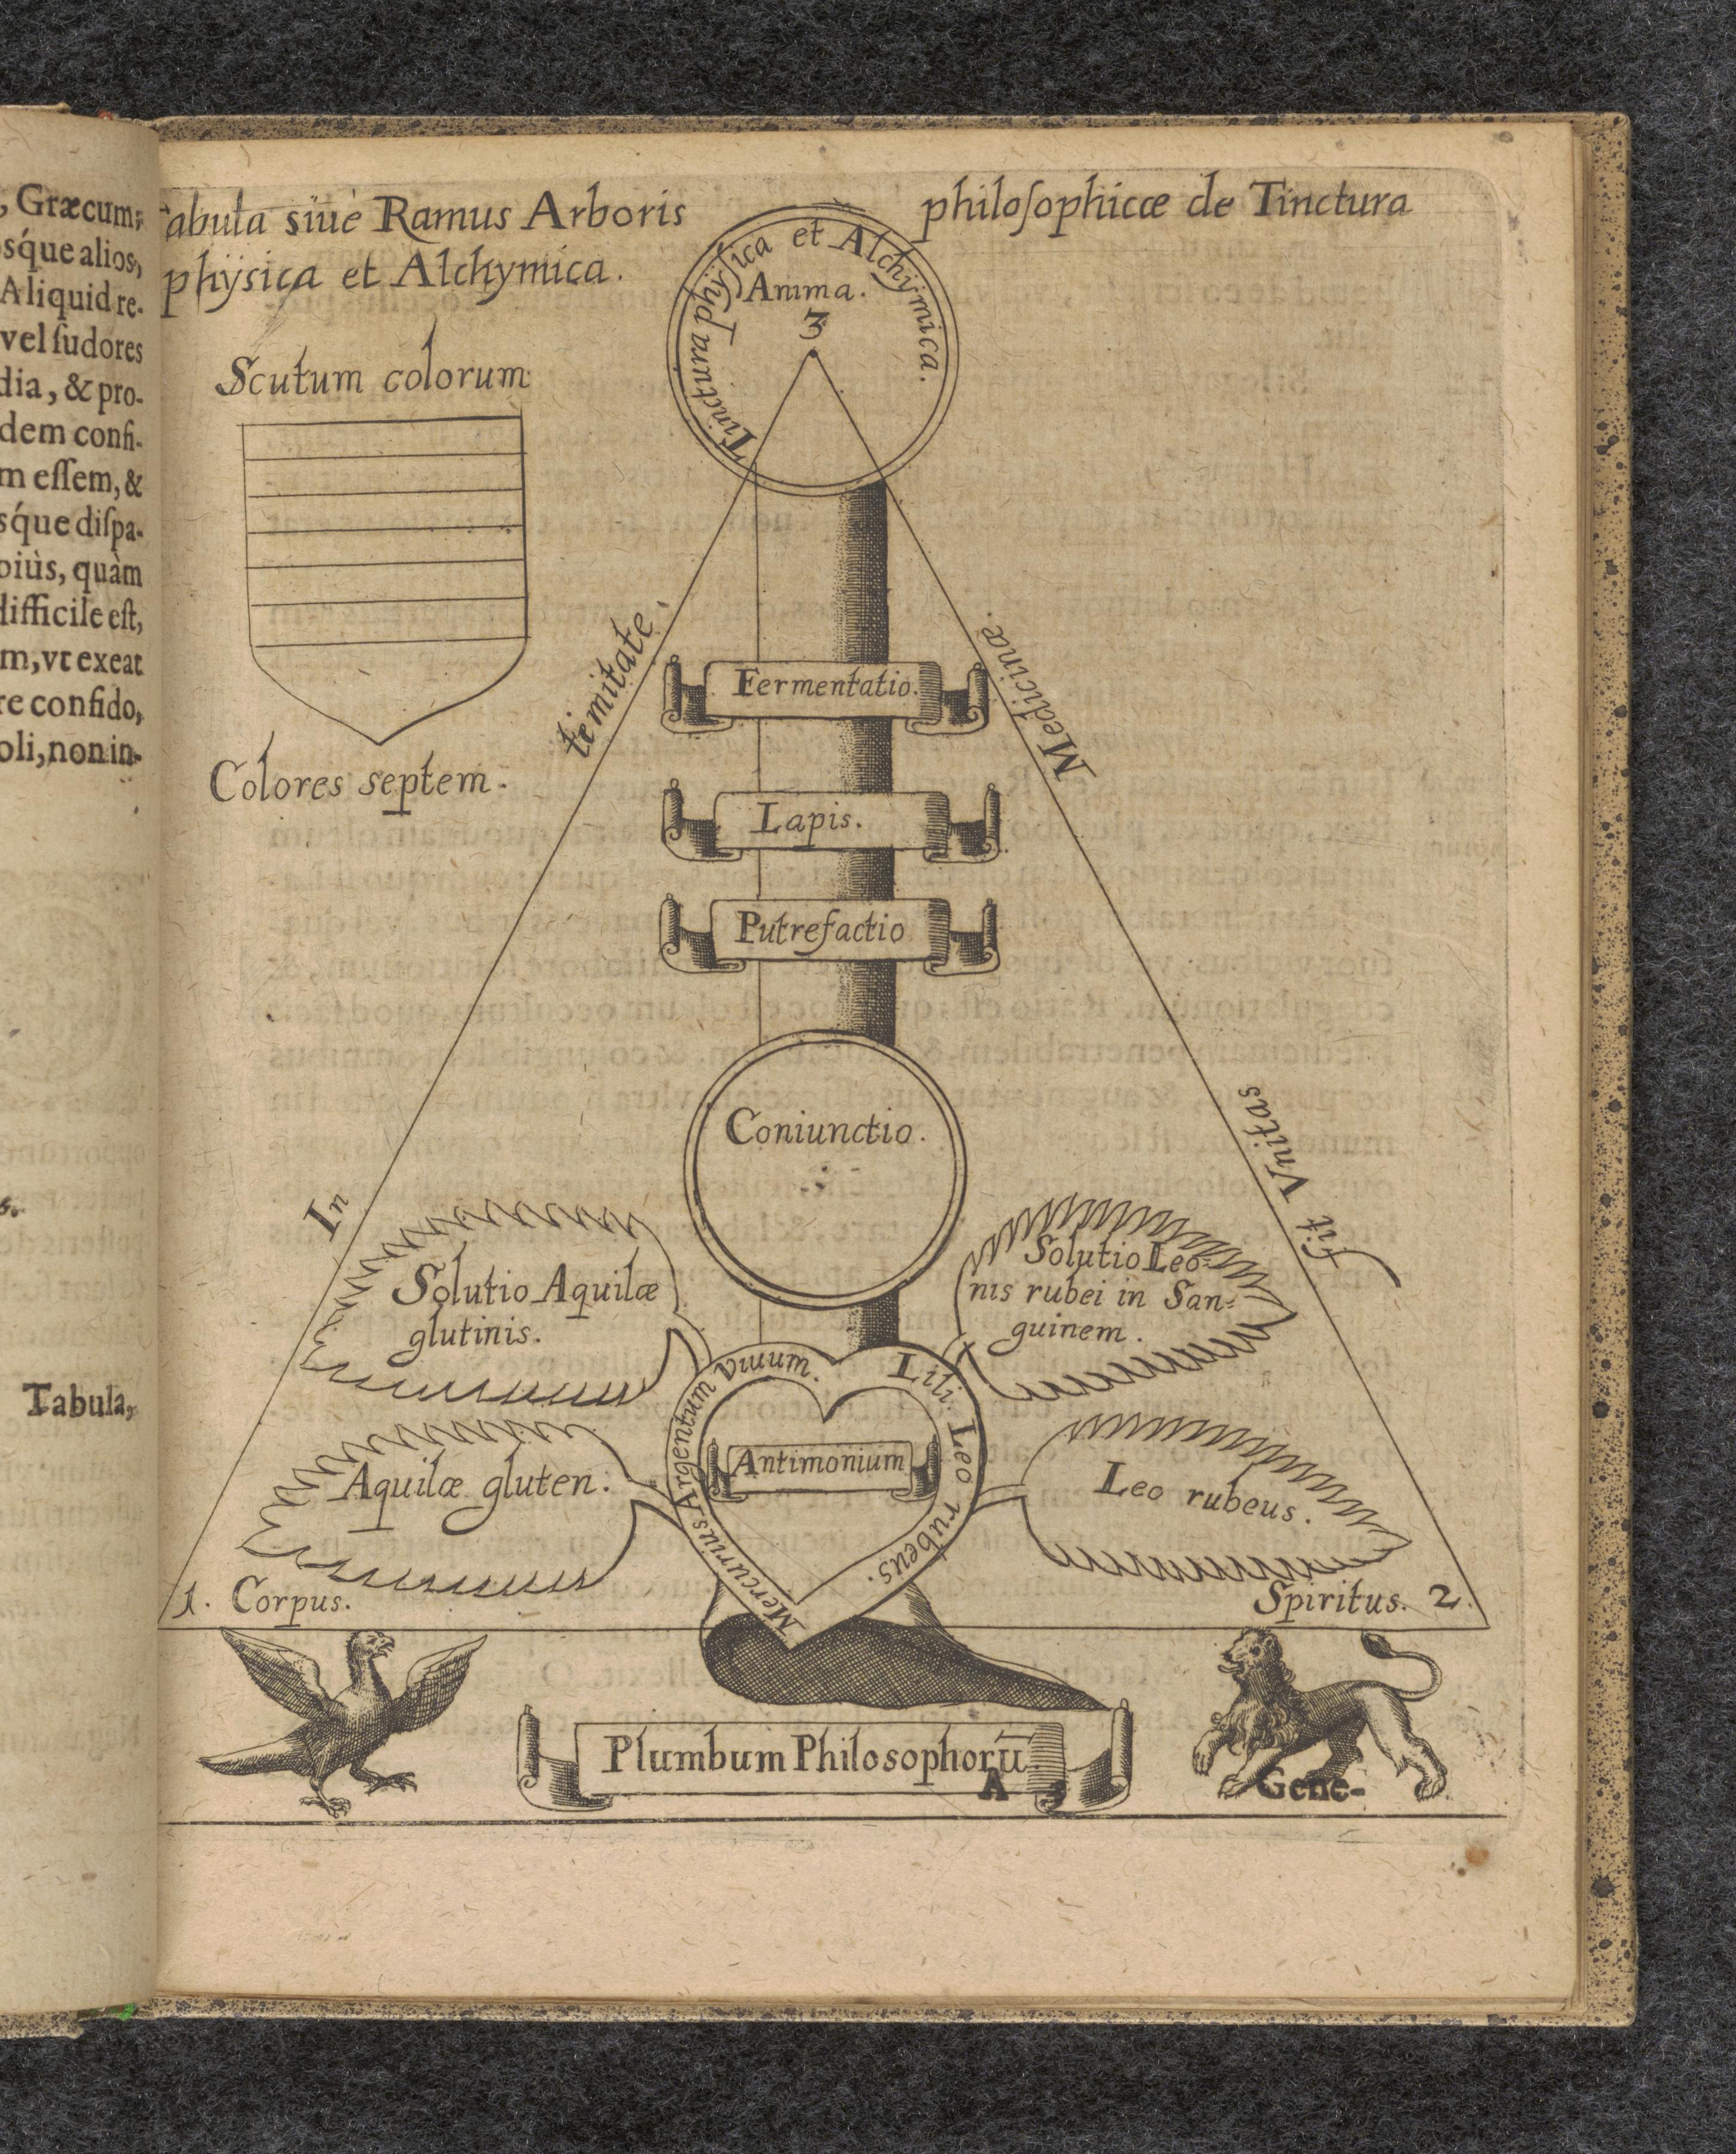 , Græcum,
sq́ue alios,
Aliquid re-
vel ſudores
dia, & pro-
dem confi-
m eſſem, &
sq́ue diſpa-
biùs, quàm
difficile eſt,
m, vt exeat
re confido,
oli, non in-
Tabula,
Tabula siuè Ramus Arboris philoſophicæ de Tinctura
phÿsica et Alchymica.
Tinctura phÿſica et Alchymica.
Anima.
3
Scutum colorum
Colores septem.
In
ternitate.
Medicinæ.
Fit Vnitas
Fermentatio.
Lapis.
Putrefactio
Coniunctio.
Solutio Aquilæ
glutinis.
Solutio Leo-
nis rubei in San=
guinem.
Mercurius Argentum Viuum.
Lili. Leo rubeus.
Antimonium
Aquilæ gluten.
Leo rubeus.
1. Corpus.
Spiritus. 2.
Plumbum Philosophorū.
A 3
Gene-